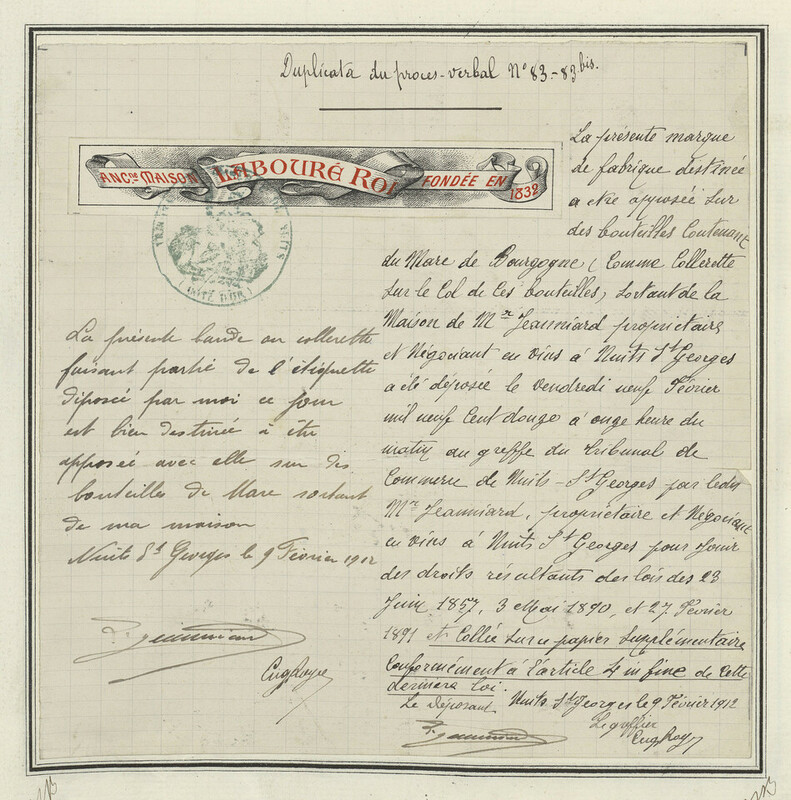 Duplicata du proces-verbal N° 83-83 bis.
ANCne MAISON LABOURÉ ROI FONDÉE EN 1832
DE NUITS
(CÔTE D'OR)
La présente bande ou collerette
faisant partie de l'étiquette
déposée par moi ce jour
est bien destinée à être
apposée avec elle sur des
bouteilles de Marc sortant
de ma maison
Nuits St Georges le 9 Février 1912
Jeanniard
Eug Royer
La présente marque
de fabrique destinée
a etre apposée sur
des bouteilles Contenant
du Marc de Bourgogne (Comme Collerette
sur le Col de Ces bouteilles) sortant de la
Maison de Mr Jeanniard propriétaire
et Négociant en vins à Nuits St Georges
a été déposée le vendredi neuf Février
mil neuf Cent douze à onze heure du
matin au greffe du Tribunal de
Commerce de Nuits-St Georges par ledit
Mr Jeanniard, propriétaire et Négociant
en vins à Nuits St Georges pour Jouir
des droits résultants des lois des 23
Juin 1857, 3 Mai 1890, et 27 Février
1891 et Collée sur ce papier supplémentaire
Conformément à l'article 4 in fine de cette
derniere loi.
Le déposant Nuits St Georges le 9 Février 1912
Le greffier
Jeanniard
Eug Roy